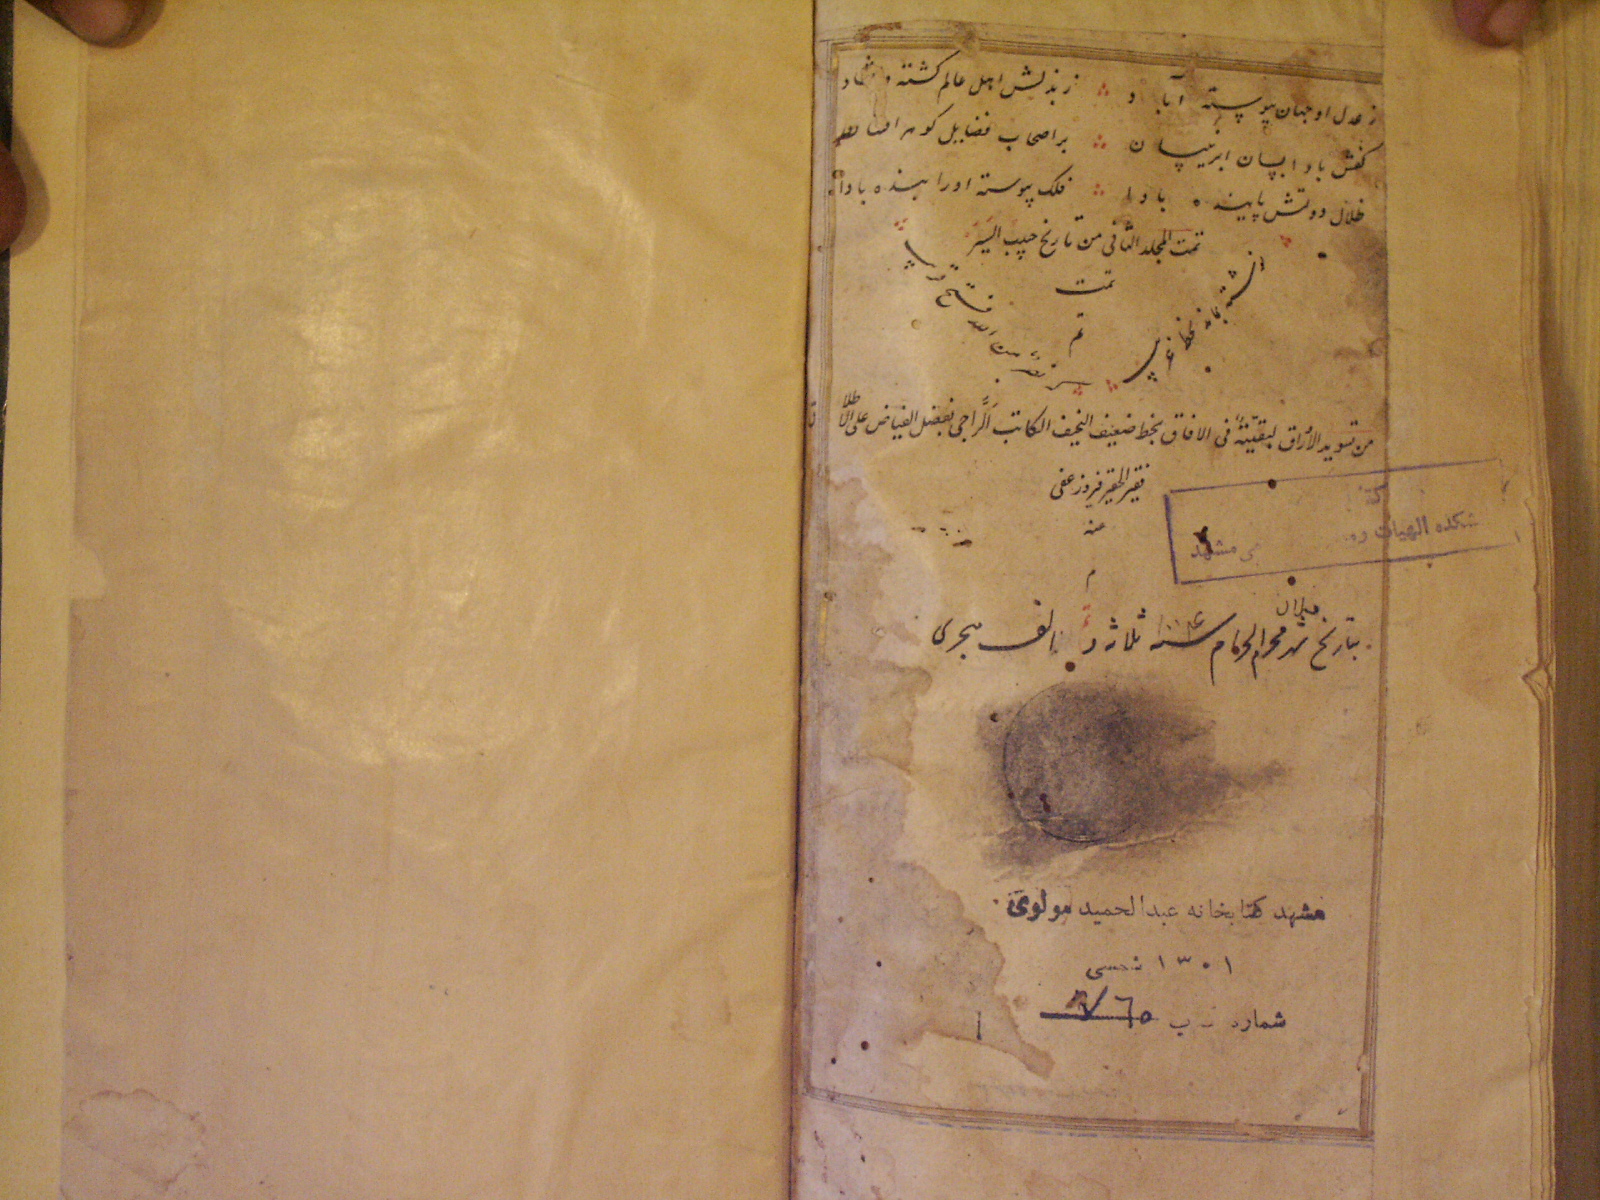 ز عدل او جهان پیوسته آباد ز بذلش اهل عالم گشته دلشاد
کفش بادا بسان ابر نیسان بر اصحاب فضایل گوهر افشان
ظلال دولتش پاینده بادا فلک پیوسته او را بنده بادا
تمت المجلد الثانی من تاریخ حبیب السیر
تمت
تم
نصر من الله فتح قریب
نوشته بماند بخط غریب
من تسوید الاوراق لبقیته فی الافاق بخط ضعیف النحیف الکاتب الراجی بفضل الفیاض علی الاطلاق
فقیر الحقیر فیروز عفی
عنه
م
بتاریخ شهر محرم الحرام سنه ثلاثه و الف هجری
الهیات
مشهد
مشهد کتابخانه عبدالحمید مولوی
۱۳۰۱ شمسی
شماره